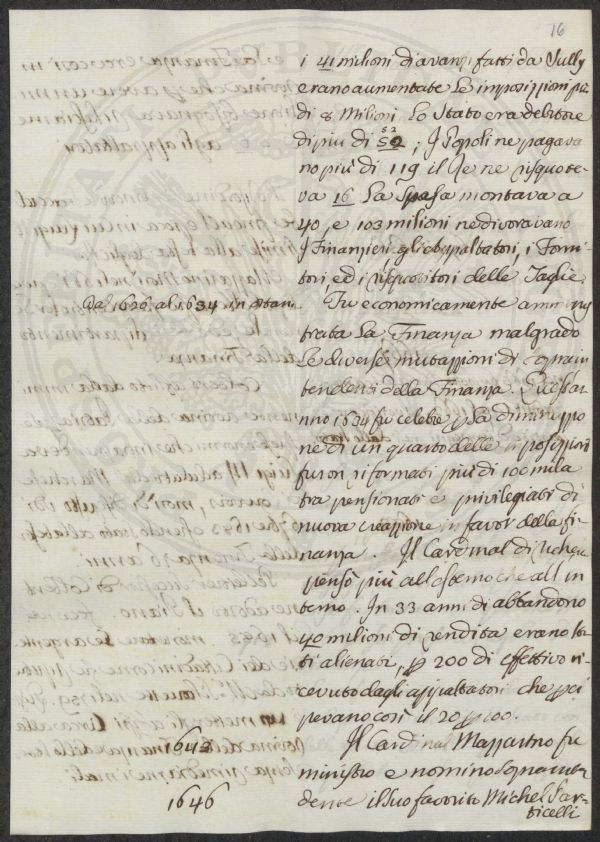 16
i 41 milioni di avanzi fatti da Sully
erano aumentate le imposizzioni più
di 8 Milioni. Lo Stato era debitore
di più di 52
52 ; I Popoli ne pagava
no più di 119 il Re ne risquote
va 16 La Spesa montava a
40, e 103 milioni ne divoravano
I Finanzieri, gli Appaltatori, i Forni
tori, ed i risquotitori delle Taglie
Dal 1626. al 1634 in 8 anni
Fu economicamente ammini
strata La Finanza malgrado
Le diverse mutazzioni di sopra in
tendenti della Finanza. Quest'an
nno 1634 fu celebre p La diminuzzio
ne di un quarto delle imposizzioni
furon riformati più di 100 mila
tra pensionati e privilegiati di
nuova creazzione in favor della fi
nanza. Il Cardinal di
pensò più all'esterno che all'in
terno. In 33 anni di abbandono
40 milioni di rendita erano sta
ti alienati, p 200 di effettivo ri
cevuto dagli appaltatori che per
cepevano così il 20 p 100.
1643
Il Cardinal Mazzarino fu
ministro e nominò sopraInten
1646
dente il suo favorito Michel Par
ticelli